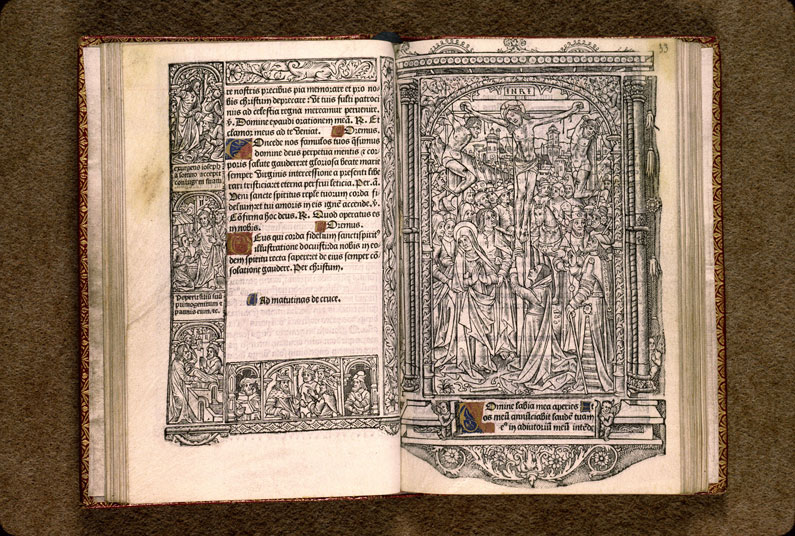 te nostris precibus pia memorare et pro no
bis christum deprecare: Ut tuis fulti patroci
niis ad celestia regna mereamur pervenire.
v. Domine exaudi orationem meā. R. Et
clamor meus ad te veniat. Oremus.
Oncede nos famulos tuos q̄sumus
domine deus perpetua mentis & cor
poris salute gaudere: et gloriosa beate marie
semper Virginis intercessione a presenti libe
rari tristicia: et eterna perfrui leticia. Per.
Veni sancte spiritus reple tuorum corda fi
delium: et tui amoris in eis ignē accende. v.
Cōfirma hoc deus. R. Quod operatus es
in nobis. Oremus.
Eus qui corda fidelium sancti spirit
illustratione docuisti: da nobis in eo
dem spiritu recta sapere: et de eius semper cō
solatione gaudere. Per christum.
Ad matutinas de cruce.
exurgens ioseph
a somno accepit
coniugem suam.
peperit filiū suū
primogenitum et
pannis eum, &c.
33
INRI
Omine labia mea aperies Et
os meū annūciabit laudē tuam
in adiutoriū meū intēde